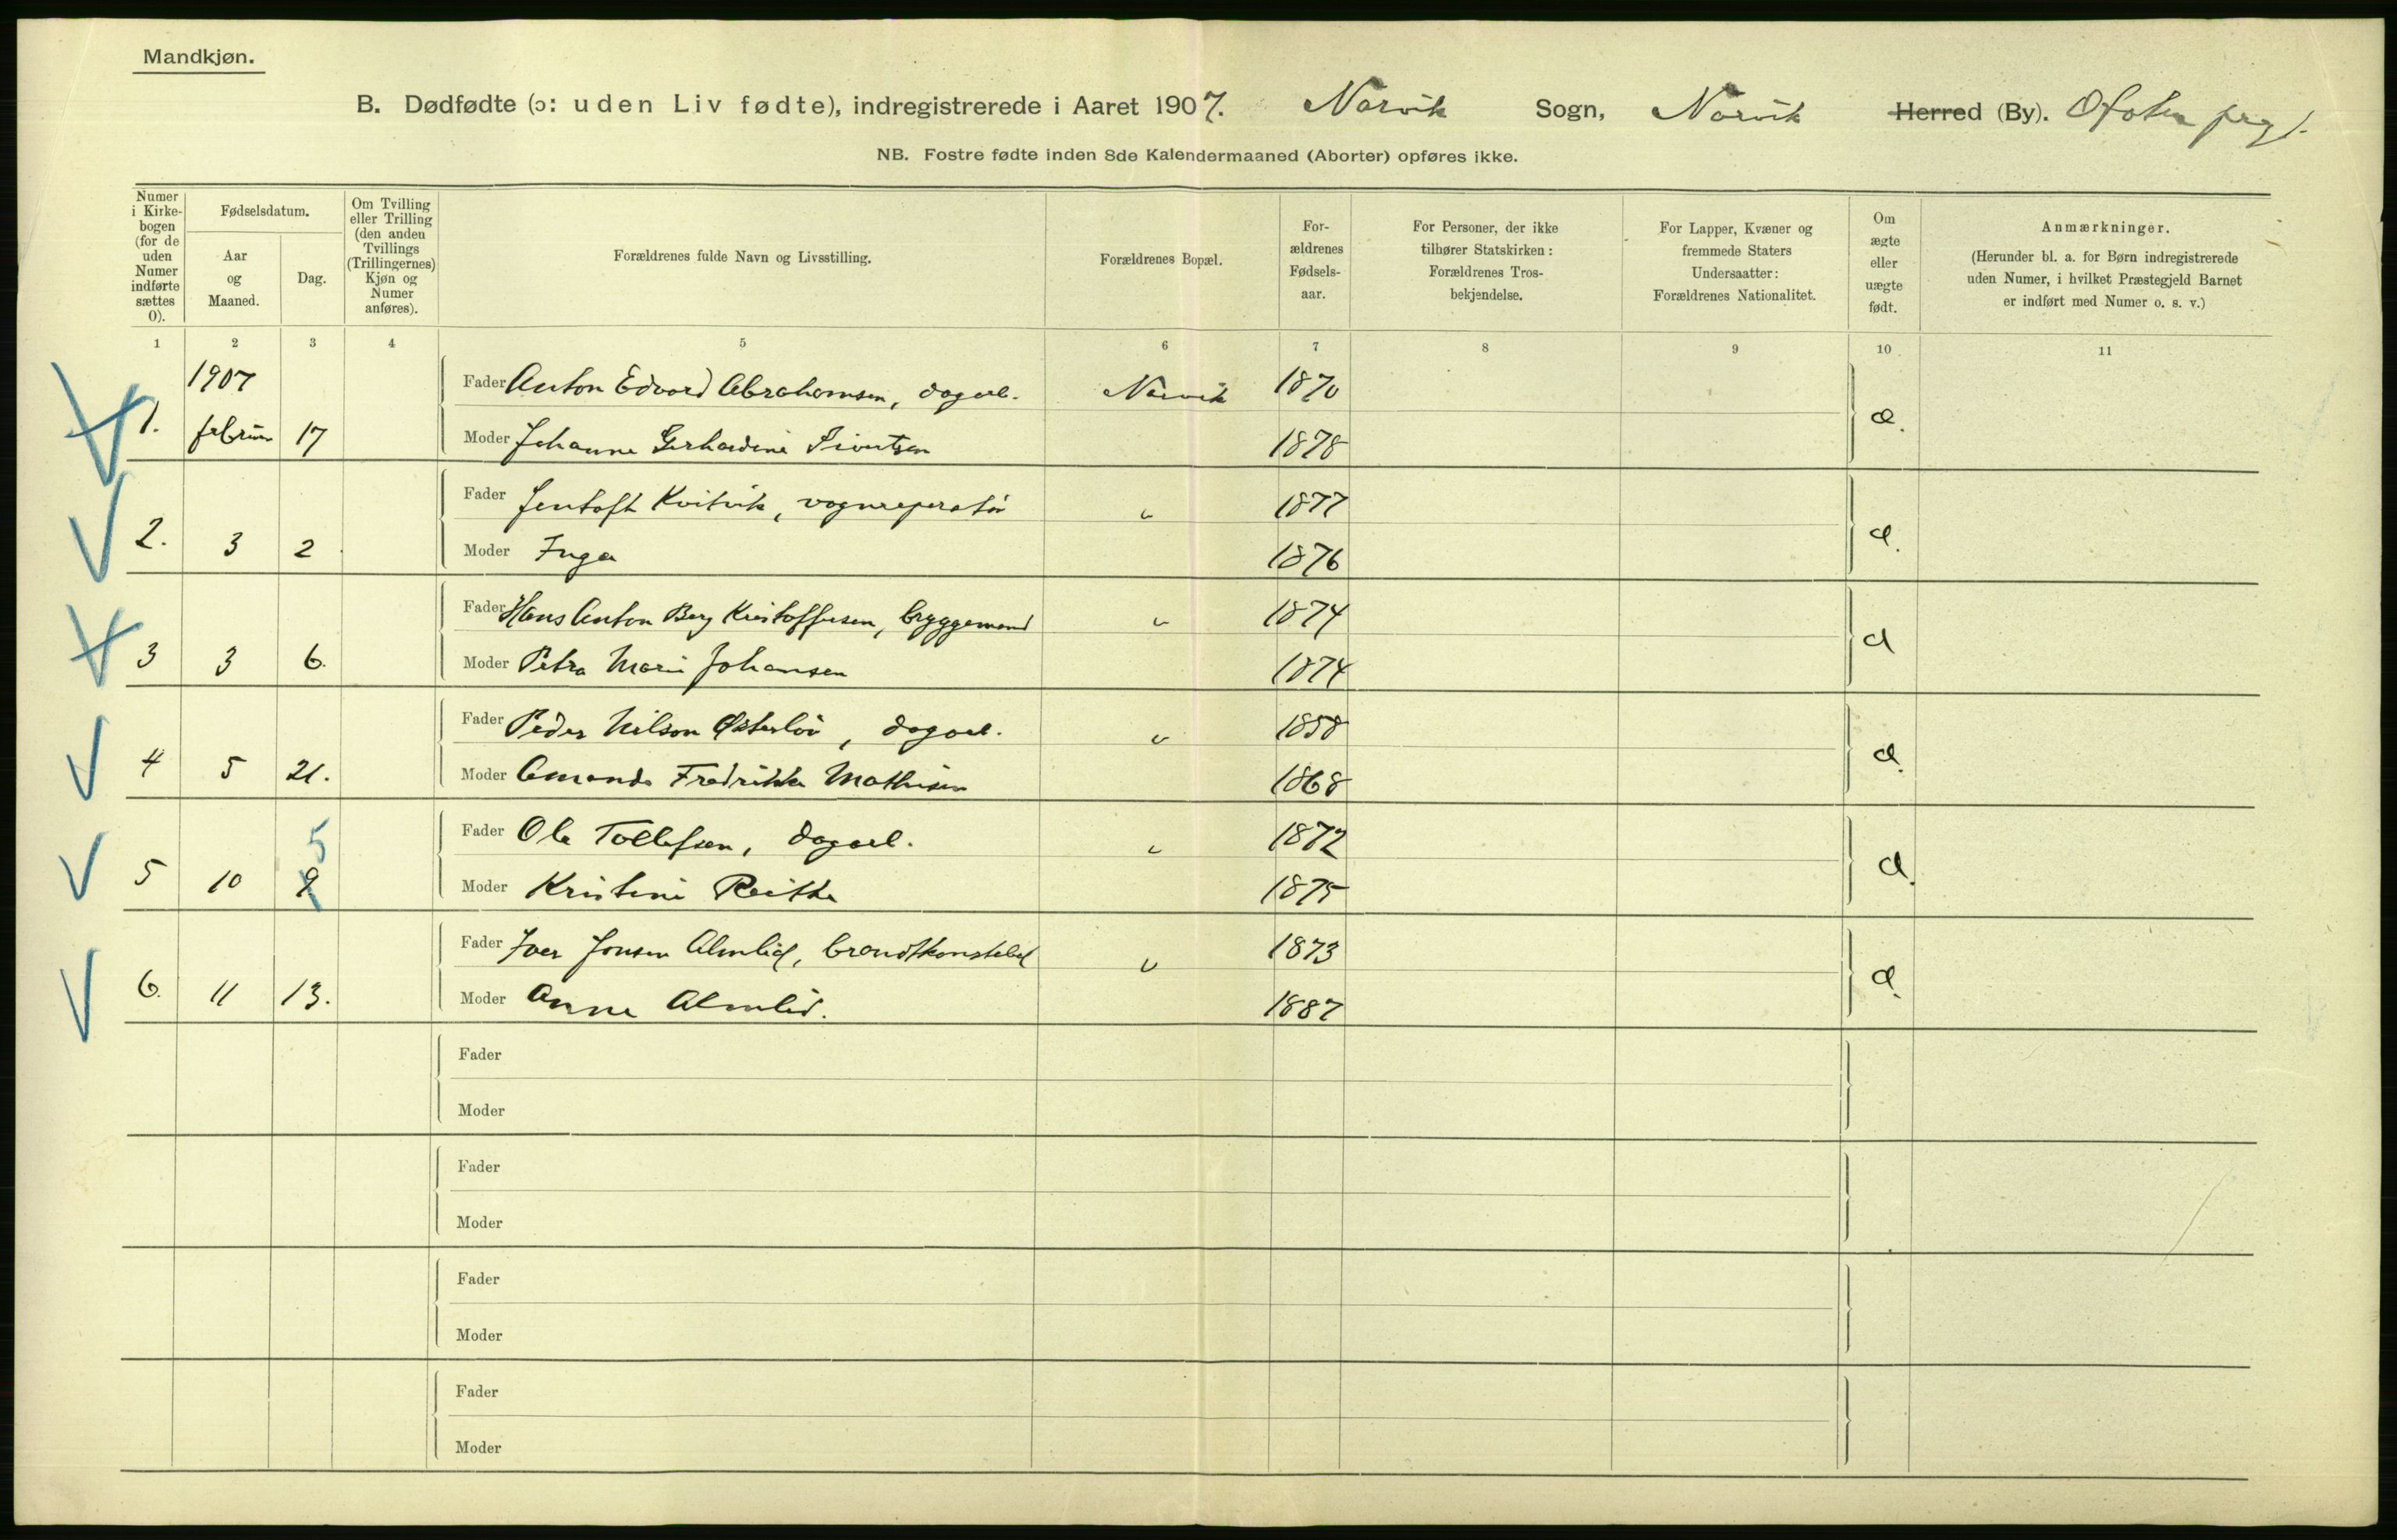 Mandkjøn.
B. Dødfødte (ɔ: uden Liv fødte), indregistrerede i Aaret 1907. Narvik Sogn, Narvik Herred (By). Ofoten prgj.
NB. Fostre fødte inden 8de Kalendermaaned (Aborter) opføres ikke.
Numer i Kirke-bogen (for de uden Numer indførte sættes 0).
Fødselsdatum.
Aar og Maaned.
Dag.
Om Tvilling eller Trilling (den anden Tvillings (Trillingernes) Kjøn og Numer anføres).
Forældrenes fulde Navn og Livsstilling.
Forældrenes Bopæl.
For-ældrenes Fødsels-aar.
For Personer, der ikke tilhører Statskirken: Forældrenes Tros-bekjendelse.
For Lapper, Kvæner og fremmede Staters Undersaatter: Forældrenes Nationalitet.
Om ægte eller uægte født.
Anmærkninger.
(Herunder bl. a. for Børn indregistrerede uden Numer, i hvilket Præstegjeld Barnet er indført med Numer o. s. v.)
1 2 3 4 5 6 7 8 9 10 11
1907 Fader Anton Edvard Abrahamsen, dagarb. Narvik 1870
1. februar 17 Moder Johanne Gerhardine Sivertsen 1878 æ.
Fader Jentoft Kvitvik, vognreparatør " 1877
2. 3 2 Moder Inga 1876 æ.
Fader Hans Anton Berg Kristoffersen, bryggemand " 1874
3 3 6. Moder Petra Marie Johansen 1874 æ
Fader Peder Nilson Østerløv, dagarb. " 1858
4 5 21. Moder Amanda Fredrikke Mathisen 1868 æ.
5 Fader Ole Tollefsen, dagarb. " 1872
5 10 9 Moder Kristine Reitte 1875 æ.
Fader Iver Jonsen Almlid, brandtkonstabel " 1873
6. 11 13. Moder Anna Almlid. 1887 æ.
Fader
Moder
Fader
Moder
Fader
Moder
Fader
Moder